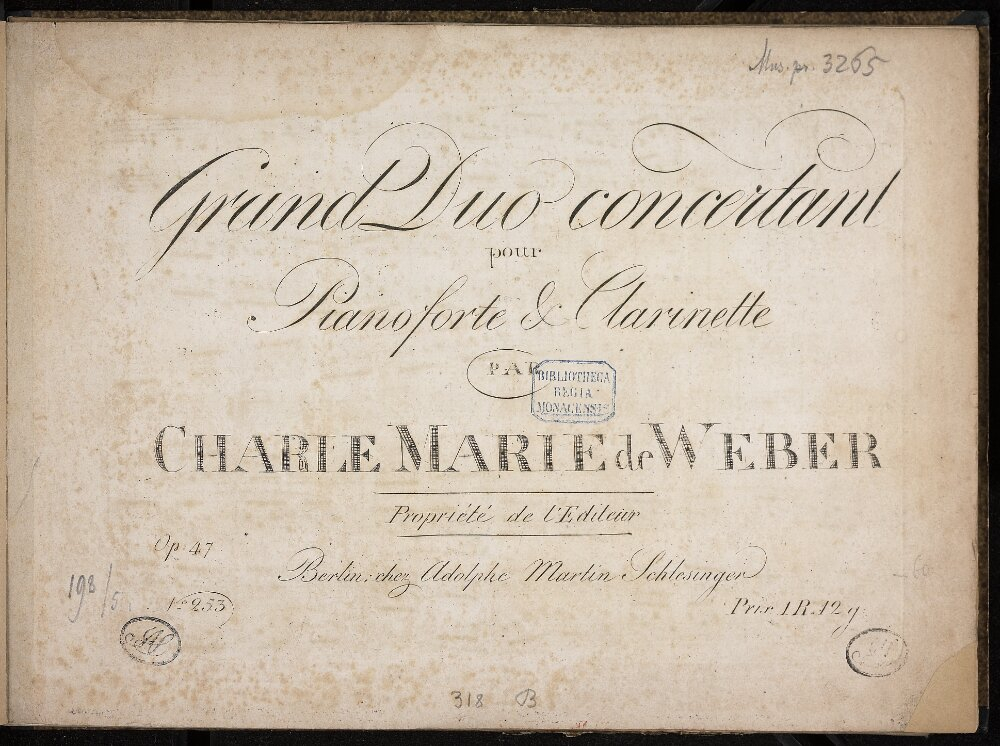 Mus. pr. 3265
Grand Duo concertant
pour
Pianoforte & Clarinette
PAR
BIBLIOTHECA
REGIA
MONACENSIS
CHARLE MARIE de WEBER
Propriété de l'Editeur
Op. 47
Berlin, chez Adolphe Martin Schlesinger
198/5
No 253
Prix 1 R. 12 g.
318 B